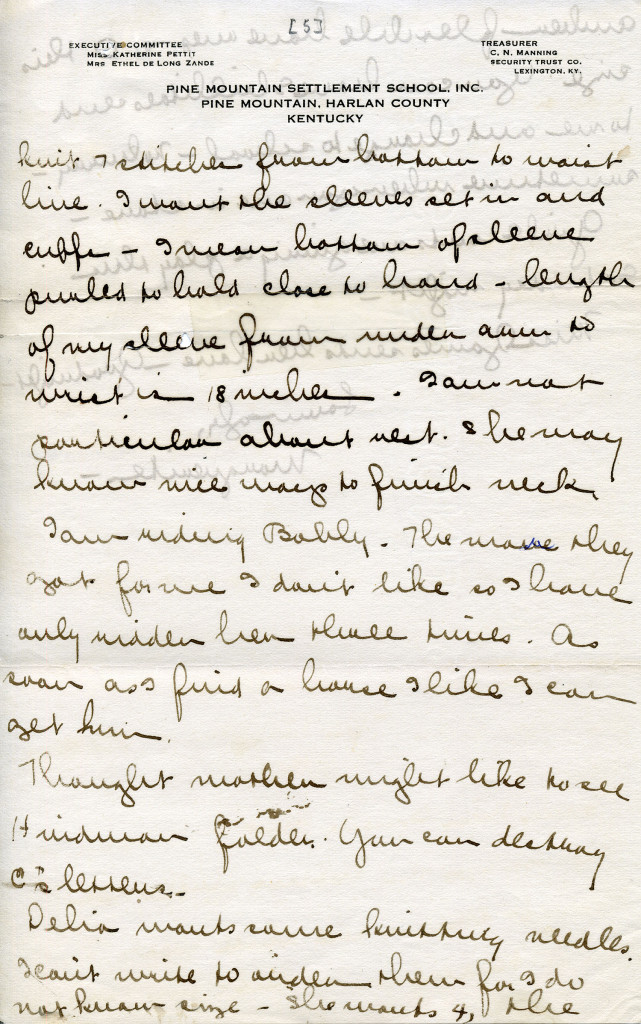 [5]
EXECUTIVE COMMITTEE
MISS KATHERINE PETTIT
MRS ETHEL DE LONG ZANDE
TREASURER
C. N. MANNING
SECURITY TRUST CO.
LEXINGTON, KY.
PINE MOUNTAIN SETTLEMENT SCHOOL, INC.
PINE MOUNTAIN, HARLAN COUNTY
KENTUCKY
knit 7 stitches from bottom to waist
line. I want the sleeves set in and
cuffs – I mean bottom of sleeve
purled to hold close to hand – length
of my sleeve from under arm to
wrist is 18 inches. I am not
particular about rest. She may
know nice ways to finish neck.
I am riding Bobby. The mare they
got for me I don't like so I have
only ridden her three times. As
soon as I find a horse I like I can
get him.
Thought mother might like to see
Hindman folder. You can destroy
C's letters.
Delia wants some knitting needles.
I can't write to order them for I do
not know size – She wants 4, the